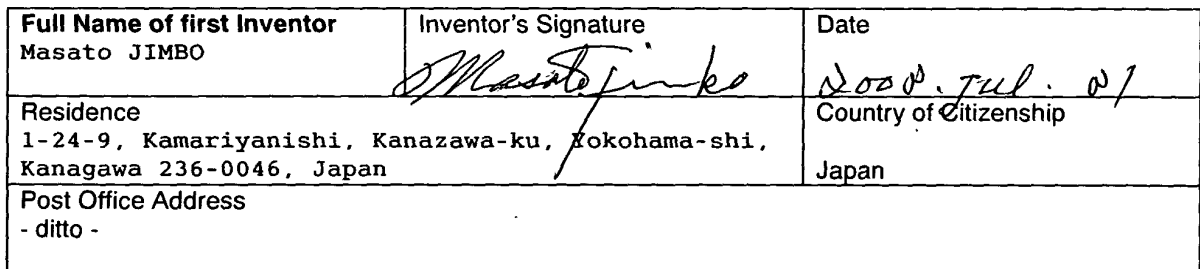 Full Name of first Inventor
Masato JIMBO
Inventor's Signature
Masato Jimbo
Date
2008. Jul. 21
Residence
1-24-9, Kamariyanishi, Kanazawa-ku, Yokohama-shi,
Kanagawa 236-0046, Japan
Country of Citizenship
Japan
Post Office Address
- ditto -